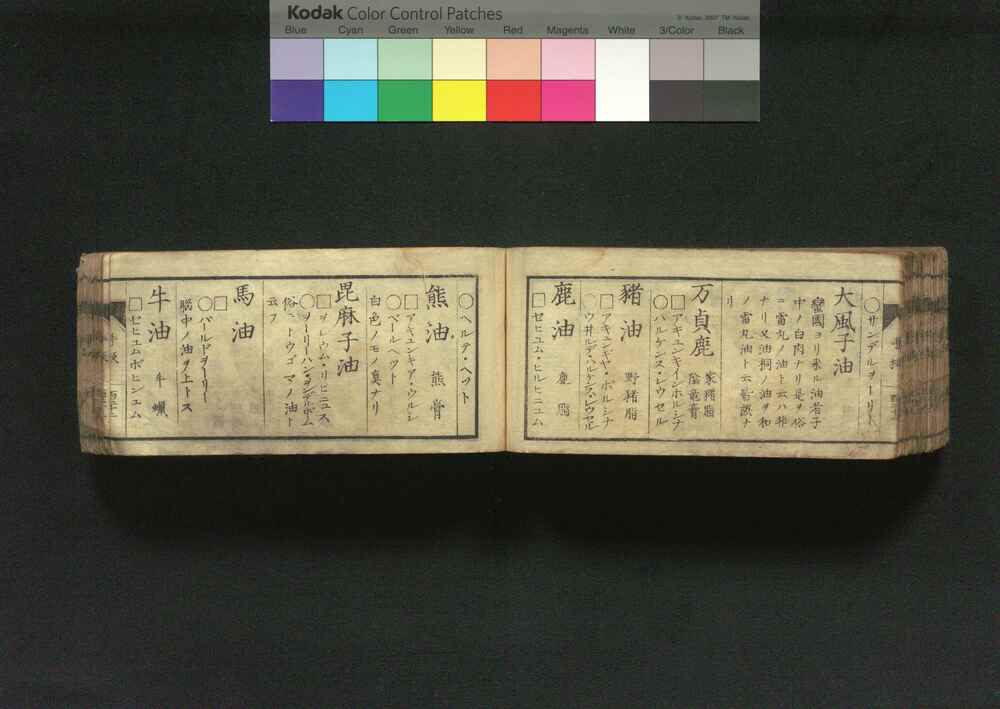 Kodak Color Control Patches
© Kodak, 2007 TM: Kodak
Blue Cyan Green Yellow Red Magenta White 3/Color Black
○サンデルヲトリー
大風子油
蠻國ヨリ來ル油若子
中ノ白肉ナリ是ヲ俗
ニ雷丸ノ油ト云ハ非
ナリ又油桐ノ油ヲ和
ノ雷丸油ト云
リ
万貞鹿 家猪脂 陰乾膏
□アキユンキインホルシナ
○バルケンス・レウセル
猪油 野猪脂
□アキユンギヤ・ポルシナ
鹿油 鹿脂
□セヒユム・ヒルヒニユム
○ヘルテ・ヘット
熊油 熊膏
□アキユンギア・ウルシ
○ベールヘツト
白色ノモノ真ナリ
毘麻子油
□ヲレウム・リヒニユス
俗ニトウゴマノ油ト
云フ
馬油
□
○パールドヲーリー
脳中ノ油ヲ上トス
牛油 牛蠟
□セヒユムボヒンユム